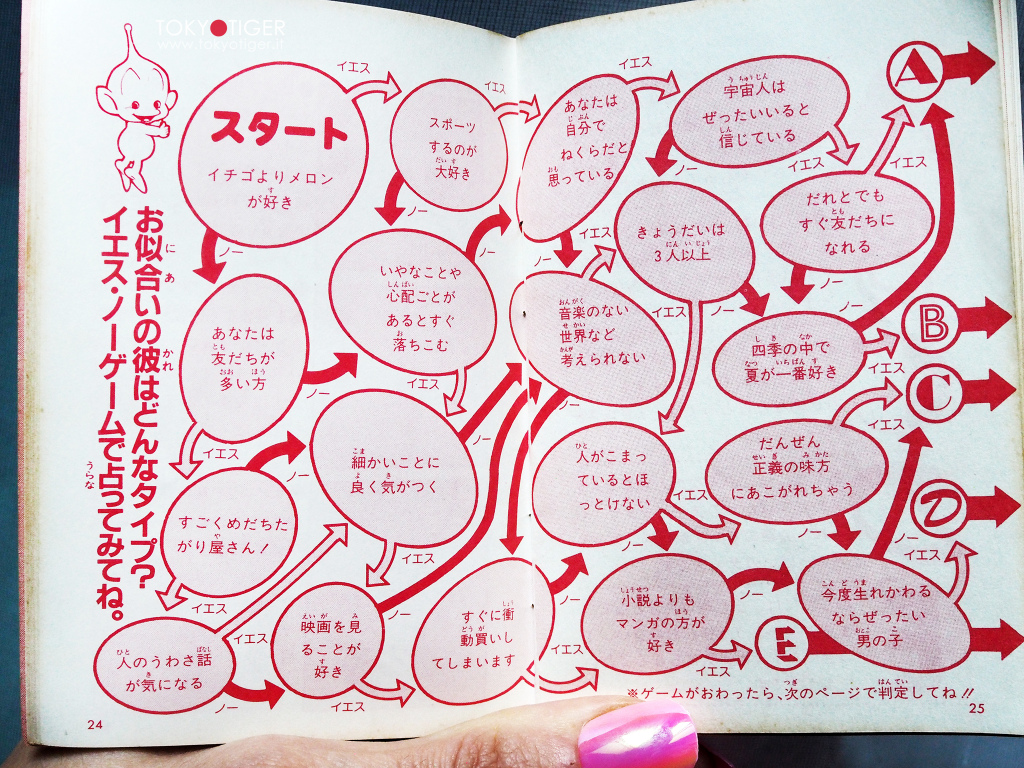 TOKYO TIGER
www.tokyotiger.it
お似合いの彼はどんなタイプ?
イエス・ノーゲームで占ってみてね。
スタート
イチゴよりメロン
が好き
イエス
ノー
スポーツ
するのが
大好き
イエス
ノー
あなたは
自分で
ねくらだと
思っている
イエス
ノー
宇宙人は
ぜったいいると
信じている
イエス
ノー
だれとでも
すぐ友だちに
なれる
イエス
ノー
A
きょうだいは
3人以上
イエス
ノー
いやなことや
心配ごとが
あるとすぐ
落ちこむ
イエス
ノー
音楽のない
世界など
考えられない
イエス
ノー
四季の中で
夏が一番好き
イエス
ノー
B
あなたは
友だちが
多い方
イエス
ノー
細かいことに
良く気がつく
イエス
ノー
人がこまっ
ているとほ
っとけない
イエス
ノー
だんぜん
正義の味方
にあこがれちゃう
イエス
ノー
C
D
すごくめだちた
がり屋さん!
イエス
人のうわさ話
が気になる
イエス
ノー
映画を見
ることが
好き
イエス
ノー
すぐに衝
動買いし
てしまいます
イエス
ノー
小説よりも
マンガの方が
好き
イエス
ノー
今度生れかわる
ならぜったい
男の子
イエス
ノー
E
※ゲームがおわったら、次のページで判定してね!!
24
25